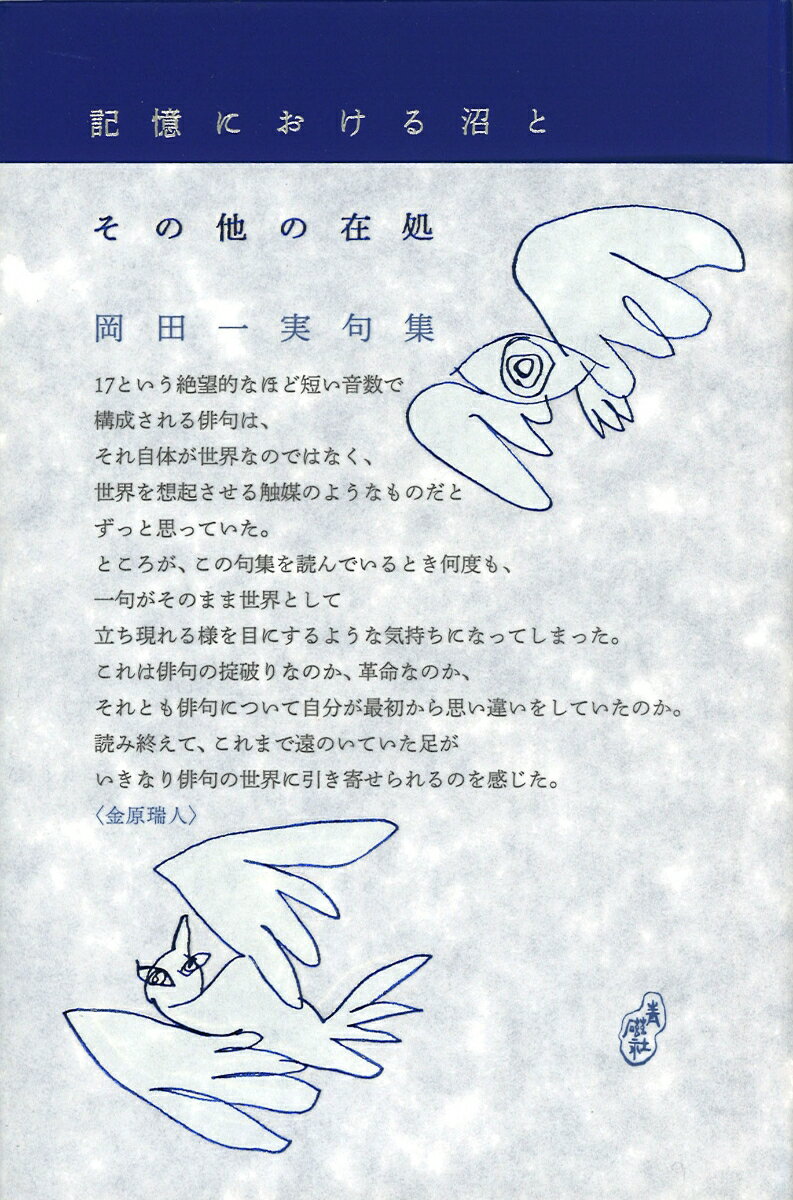 記憶における沼と
その他の在処
岡田一実句集
17という絶望的なほど短い音数で
構成される俳句は、
それ自体が世界なのではなく、
世界を想起させる触媒のようなものだと
ずっと思っていた。
ところが、この句集を読んでいるとき何度も、
一句がそのまま世界として
立ち現れる様を目にするような気持ちになってしまった。
これは俳句の掟破りなのか、革命なのか、
それとも俳句について自分が最初から思い違いをしていたのか。
読み終えて、これまで遠のいていた足が
いきなり俳句の世界に引き寄せられるのを感じた。
〈金原瑞人〉
青磁社